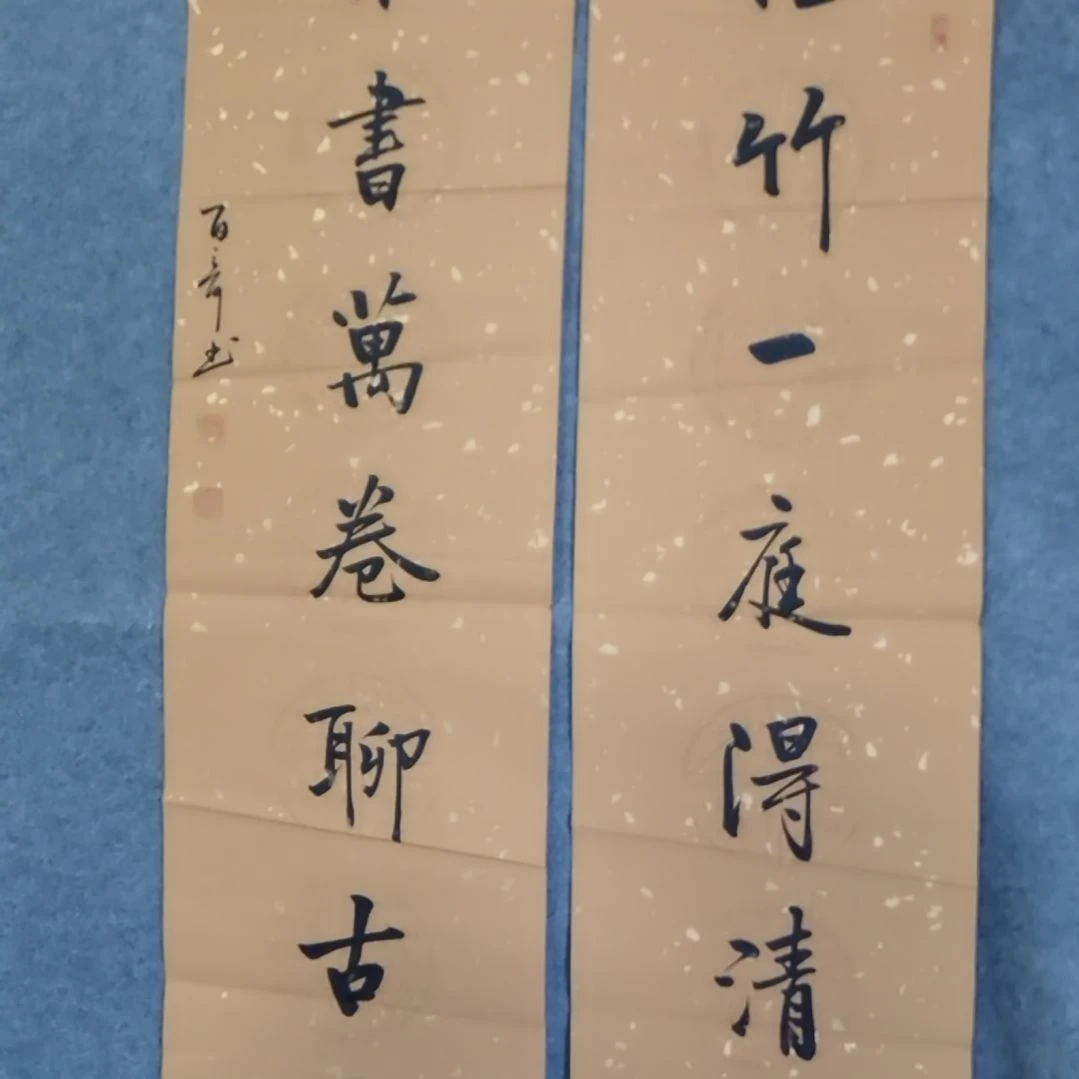 竹一庭得清
書萬卷聊古
百奇书